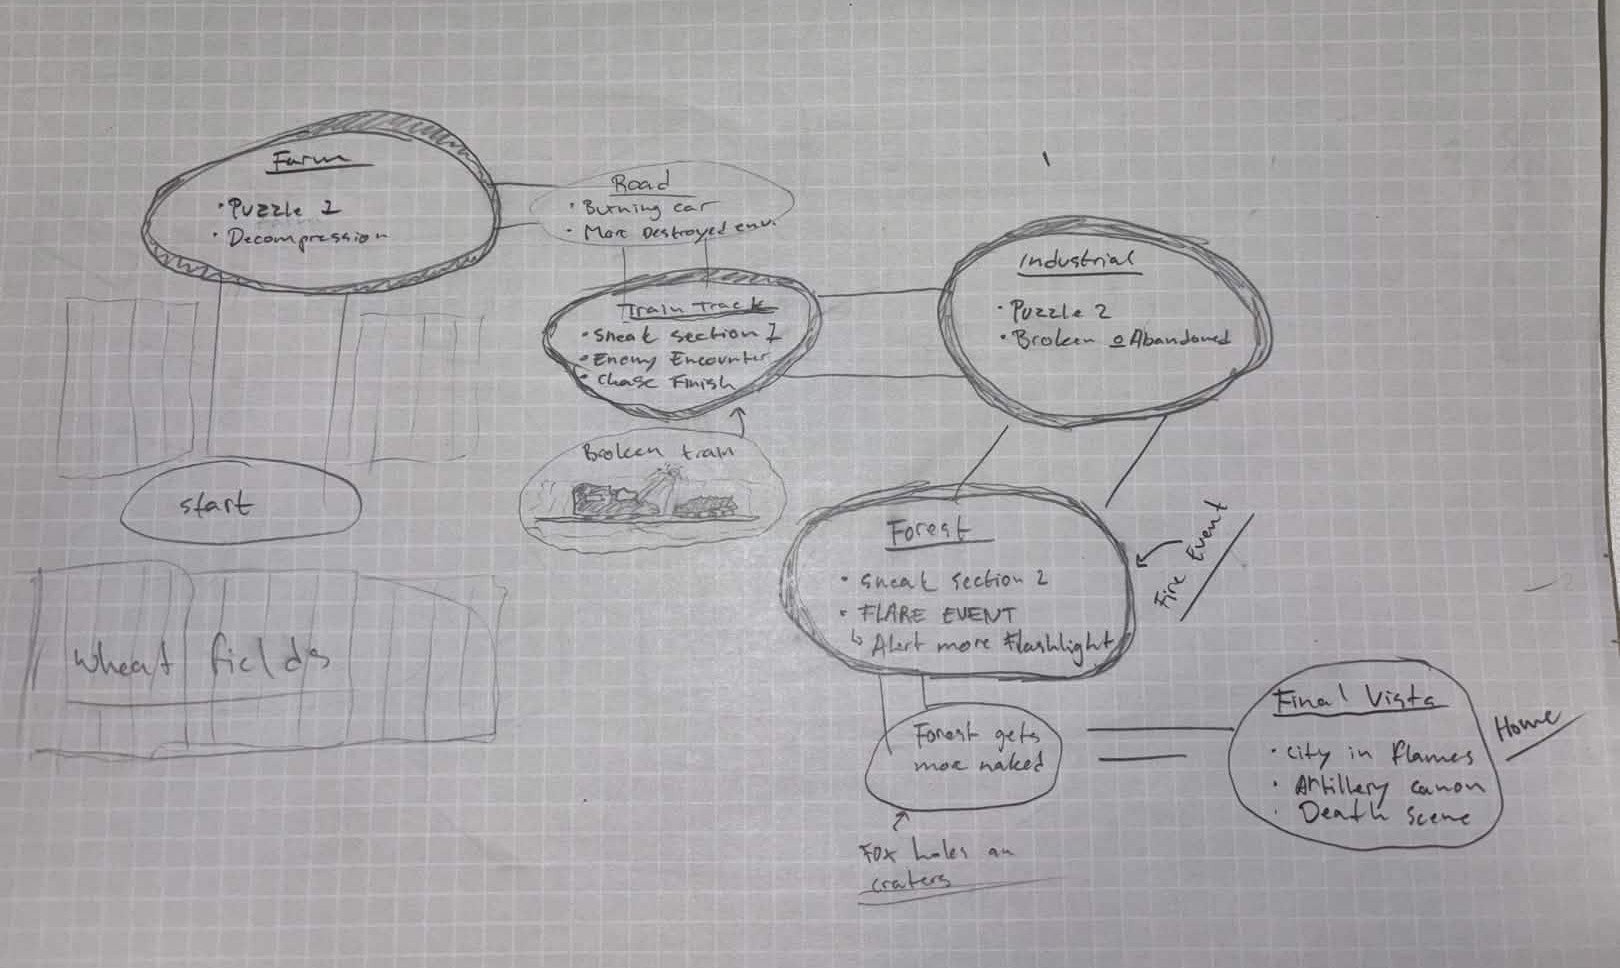 Farm
• Puzzle 1
• Decompression
Road
• Burning car
• More Destroyed env.
Train Track
• Sneak section 1
• Enemy Encounter
• Chase Finish
Broken train
Industrial
• Puzzle 2
• Broken o Abandoned
start
wheat fields
Forest
• sneak section 2
• FLARE EVENT
↳ Alert more Flashlight
Fire Event
Forest gets
more naked
Fox holes an
craters
Final Vista
• City in flames
• Artillery canon
• Death scene
Home